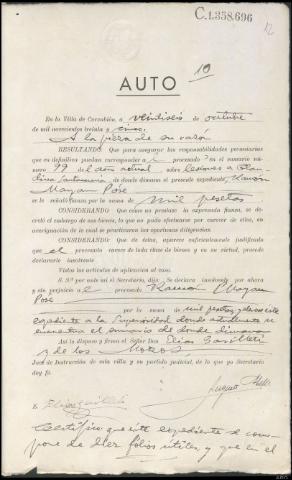 C.1.358.696
12
AUTO
10
En la Villa de Corcubión, a veintiseis de octubre
de mil novecientos treinta y cinco.
A la pieza de su razón
RESULTANDO: Que para asegurar las responsabilidades pecuniarias
que en definitiva puedan corresponder a procesado en el sumario
99 del año actual, sobre lesiones a
de donde dimana el presente expediente Ramón
Mayan Pose
se le señaló fianza por la suma de mil pesetas
CONSIDERANDO: Que como no prestase la expresada fianza, se de-
cretó el embargo de sus bienes, lo que no pudo efectuarse por carecer de ellos, en
averiguación de lo cual se practicaron las oportunas diligencias.
CONSIDERANDO: Que de éstas, aparece suficientemente justificado
que el procesado carece de toda clase de bienes y en su virtud, procede
declararle insolvente
Vistos los artículos de aplicación al caso.
S. Sª por ante mi el Secretario, dijo: Se declara insolvente por ahora
y sin perjuicio a procesado Ramón Mayan
Pose
por la suma de mil pesetas y elevese este
expediente a la Superioridad donde actualmente se
encuentra el sumario de donde dimana
Así lo dispuso y firma el Señor Don Elías
y de los
Juez de Instrucción de esta villa y su partido judicial, de lo que yo Secretario
doy fé.
Certifico que este expediente se com-
pone de diez folios útiles, y que en el